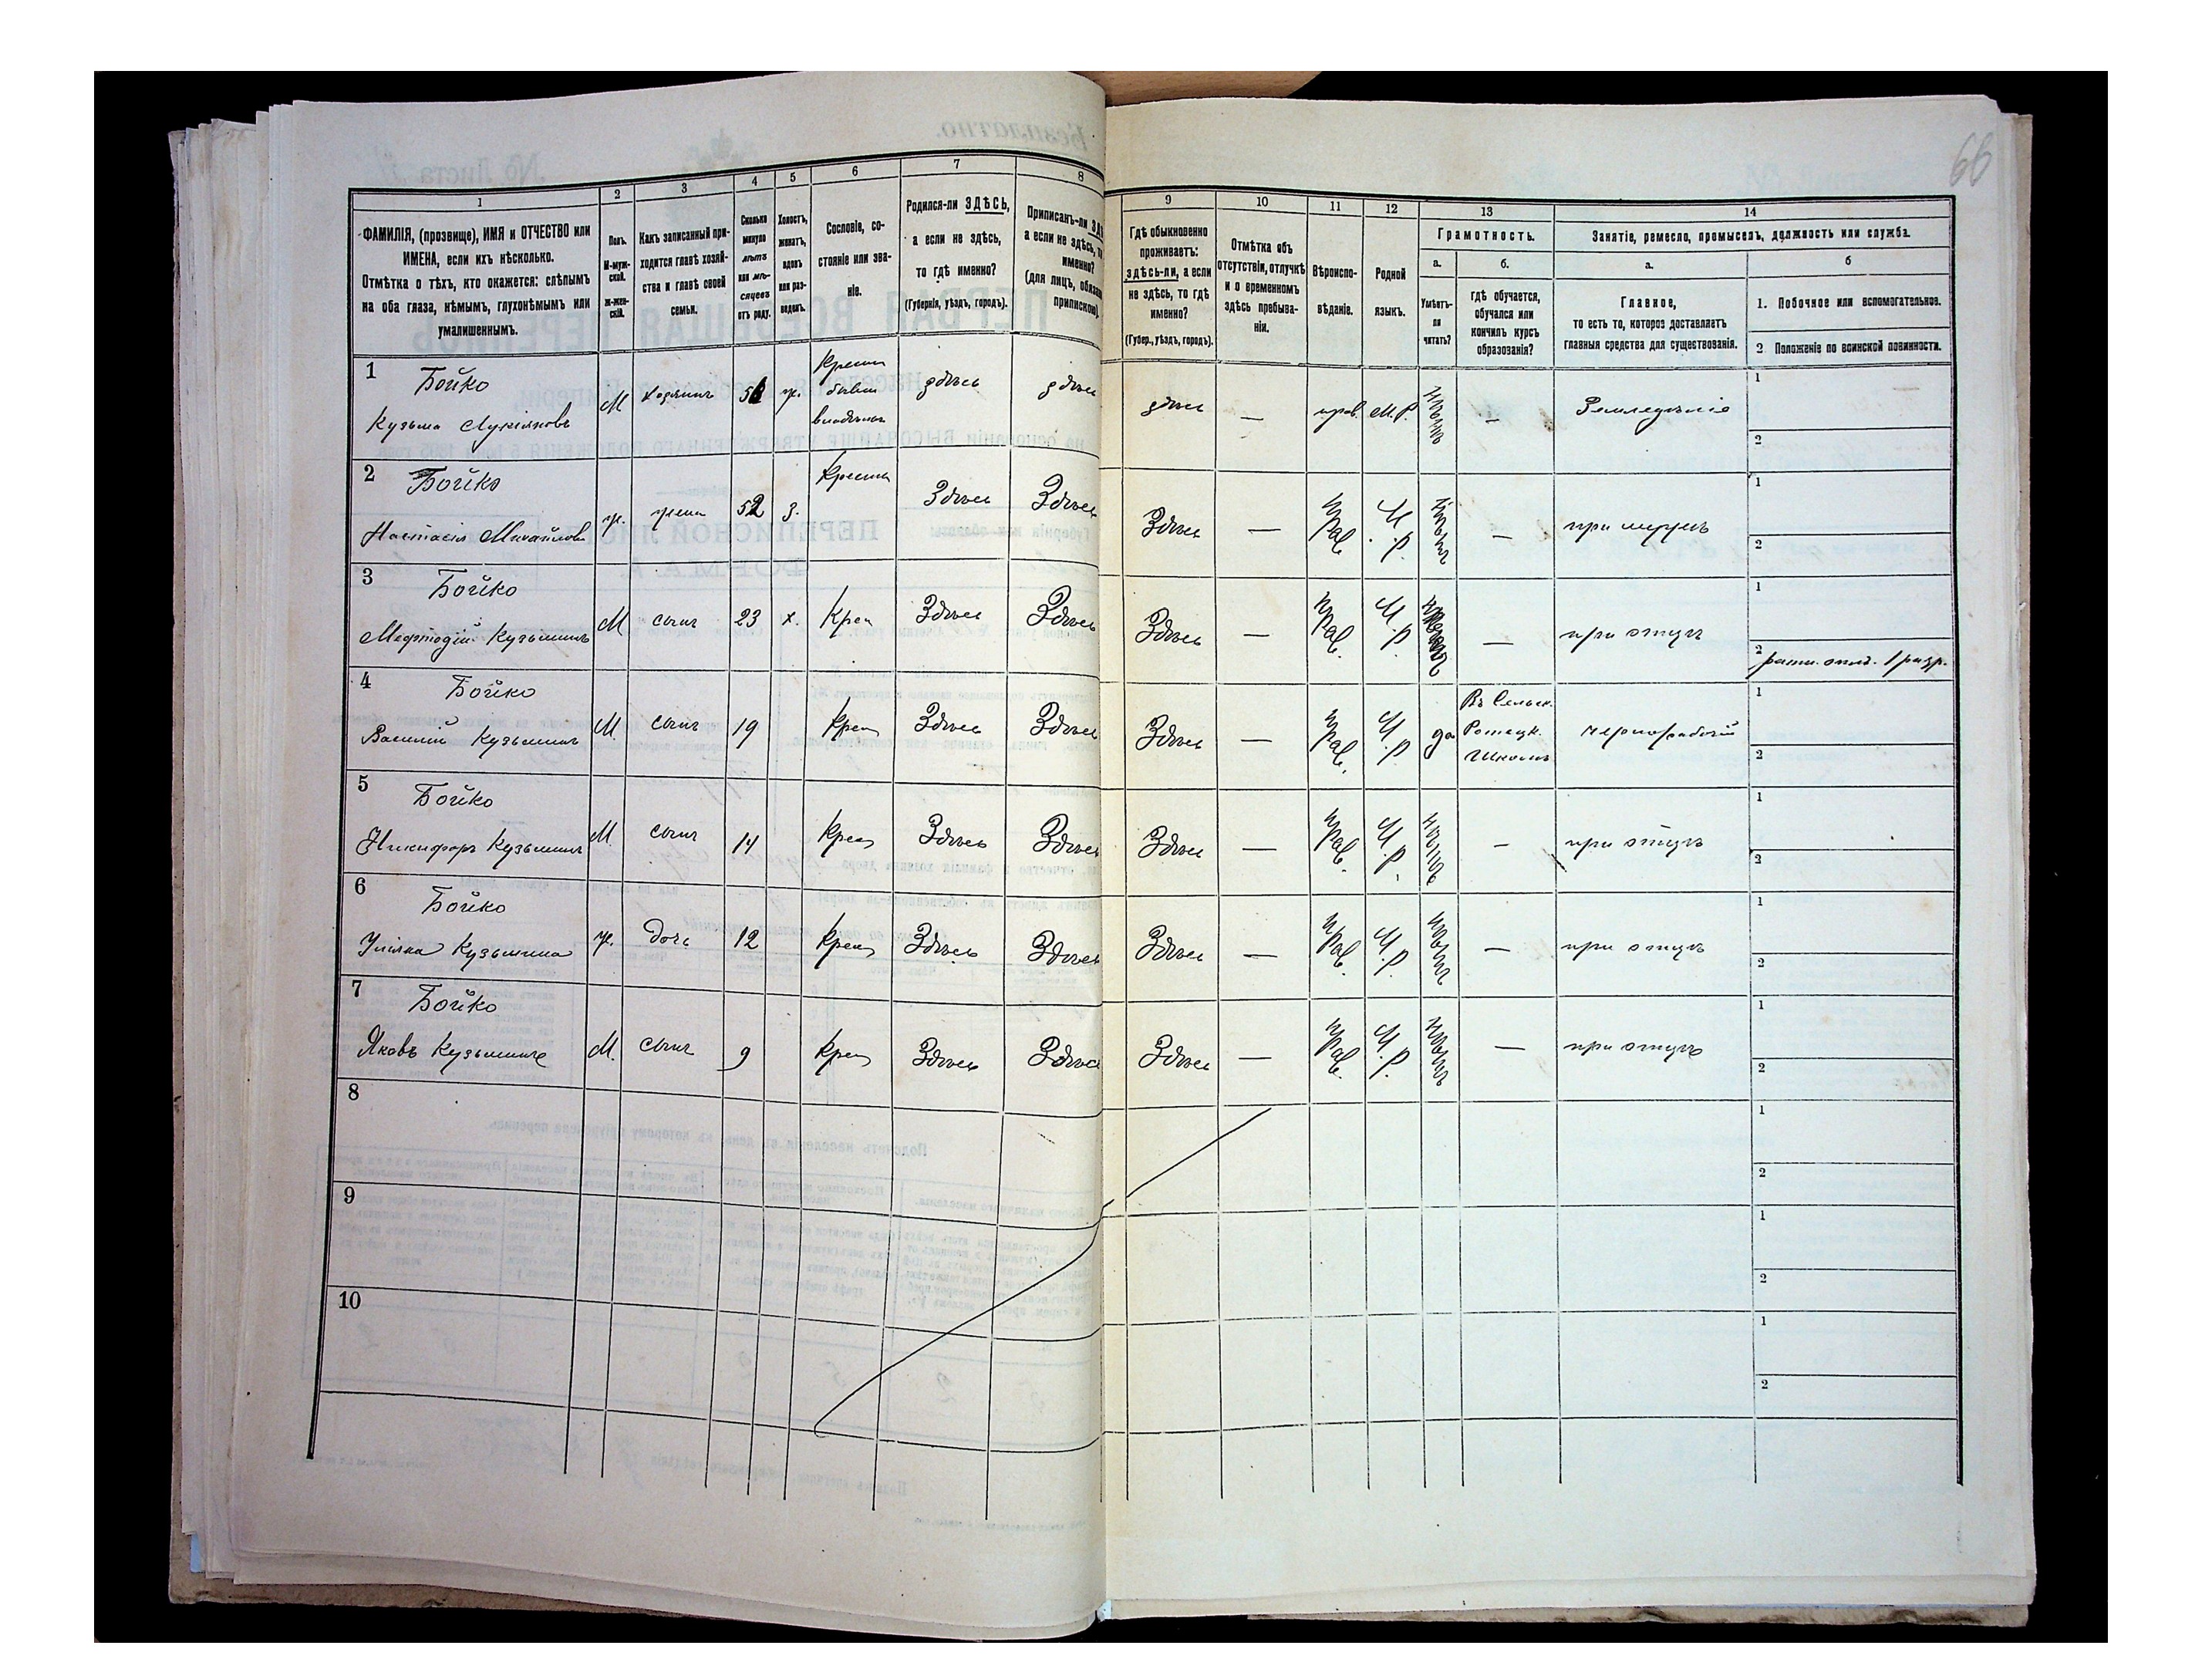 66
1 2 3 4 5 6 7 8 9 10 11 12 13 14
ФАМИЛІЯ, (прозвище), ИМЯ и ОТЧЕСТВО или
ИМЕНА, если ихъ нѣсколько.
Отмѣтка о тѣхъ, кто окажется: слѣпымъ
на оба глаза, нѣмымъ, глухонѣмымъ или
умалишеннымъ.
Полъ.
М-муж-
ской.
ж-жен-
скій.
Какъ записанный при-
ходится главѣ хозяй-
ства и главѣ своей
семьи.
Сколько
минуло
лѣтъ
или мѣ-
сяцевъ
отъ роду.
Холостъ,
женатъ,
вдовъ
или раз-
веденъ.
Сословіе, со-
стояніе или зва-
ніе.
Родился-ли ЗДѢСЬ,
а если не здѣсь,
то гдѣ именно?
(Губернія, уѣздъ, городъ).
Приписанъ-ли
а если не здѣсь,
именно?
(для лицъ,
Гдѣ обыкновенно
проживаетъ:
здѣсь-ли, а если
не здѣсь, то гдѣ
именно?
(Губер., уѣздъ, городъ).
Отмѣтка объ
отсутствіи, отлучкѣ
и о временномъ
здѣсь пребыва-
ніи.
Вѣроиспо-
вѣданіе.
Родной
языкъ.
Грамотность.
а.
Умѣетъ-
ли
читать?
б.
гдѣ обучается,
обучался или
кончилъ курсъ
образованія?
Занятіе, ремесло, промыселъ, должность или служба.
а.
Главное,
то есть то, которое доставляетъ
главныя средства для существованія.
б
1. Побочное или вспомогательное.
2 Положеніе по воинской повинности.
1 Бойко
Кузьма Лукіяновъ М хозяинъ ж. Крест
бывш
владѣльч здѣсь здѣсь здѣсь — прав. М.Р. — Земледѣліе 1 — 2
2 Бойко
Настасія Михайлова ж. жена 52 з. Крестьн Здѣсь Здѣсь Здѣсь — Прав. М.Р. — при мужѣ 1 2
3 Бойко
Мефтодій Кузьминъ М сынъ 23 х. Крес Здѣсь Здѣсь Здѣсь — Прав. М.Р. — при отцѣ 1 2 ратн. опол. 1 разр.
4 Бойко
Василій Кузьминъ М сынъ 19 Крес Здѣсь Здѣсь Здѣсь — Прав. М.Р. да Въ Сельск.
Школѣ чернорабочій 1 2
5 Бойко
Никифоръ Кузьминъ М сынъ 14 Крес Здѣсь Здѣсь Здѣсь — Прав. М.Р. — при отцѣ 1 2
6 Бойко
Уліяна Кузьмина ж. дочь 12 Крес Здѣсь Здѣсь Здѣсь — Прав. М.Р. — при отцѣ 1 2
7 Бойко
Яковъ Кузьминъ М. сынъ 9 Крес Здѣсь Здѣсь Здѣсь — Прав. М.Р. — при отцѣ 1 2
8 1 2
9 1 2
10 1 2